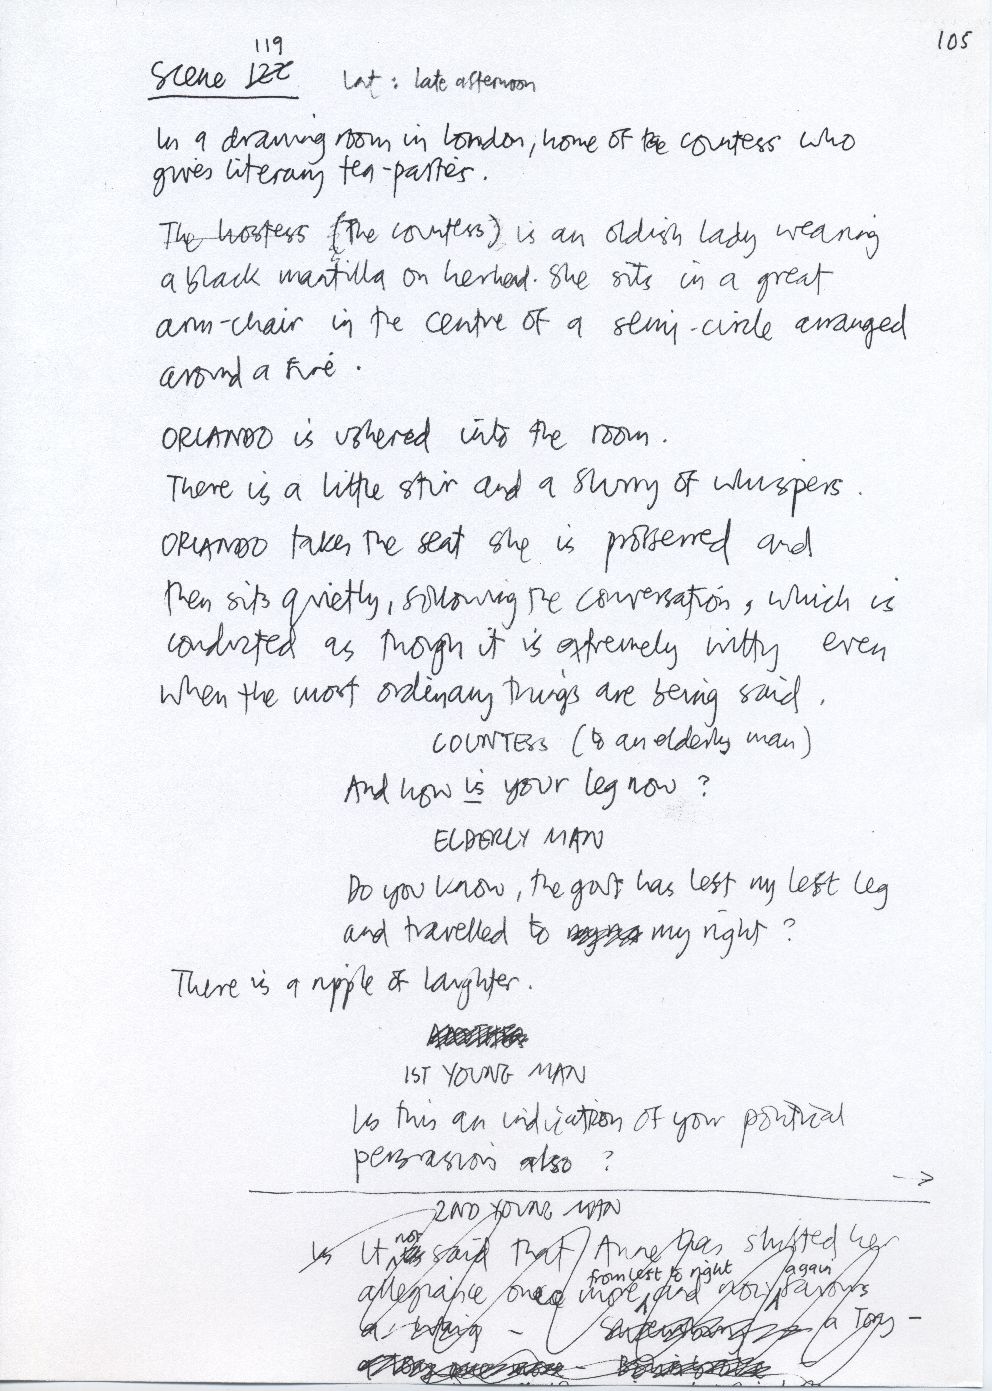 105
119
Scene 122 Int : late afternoon
In a drawing room in London, home of the countess who
gives literary tea-parties.
The hostess (The countess) is an oldish lady wearing
a black mantilla on her head. She sits in a great
arm-chair in the centre of a semi-circle arranged
around a fire.
ORLANDO is ushered into the room.
There is a little stir and a flurry of whispers.
ORLANDO takes the seat she is proffered and
then sits quietly, following the conversation, which is
conducted as though it is extremely witty even
when the most ordinary things are being said.
COUNTESS (to an elderly man)
And how is your leg now ?
ELDERLY MAN
Do you know, the gout has left my left leg
and travelled to my right ?
There is a ripple of laughter.
1ST YOUNG MAN
Is this an indication of your political
persuasion also ?
-->
2ND YOUNG MAN
Is it not said that Anne has shifted her
from left to right again
allegiance once more and now favours
a Tory -